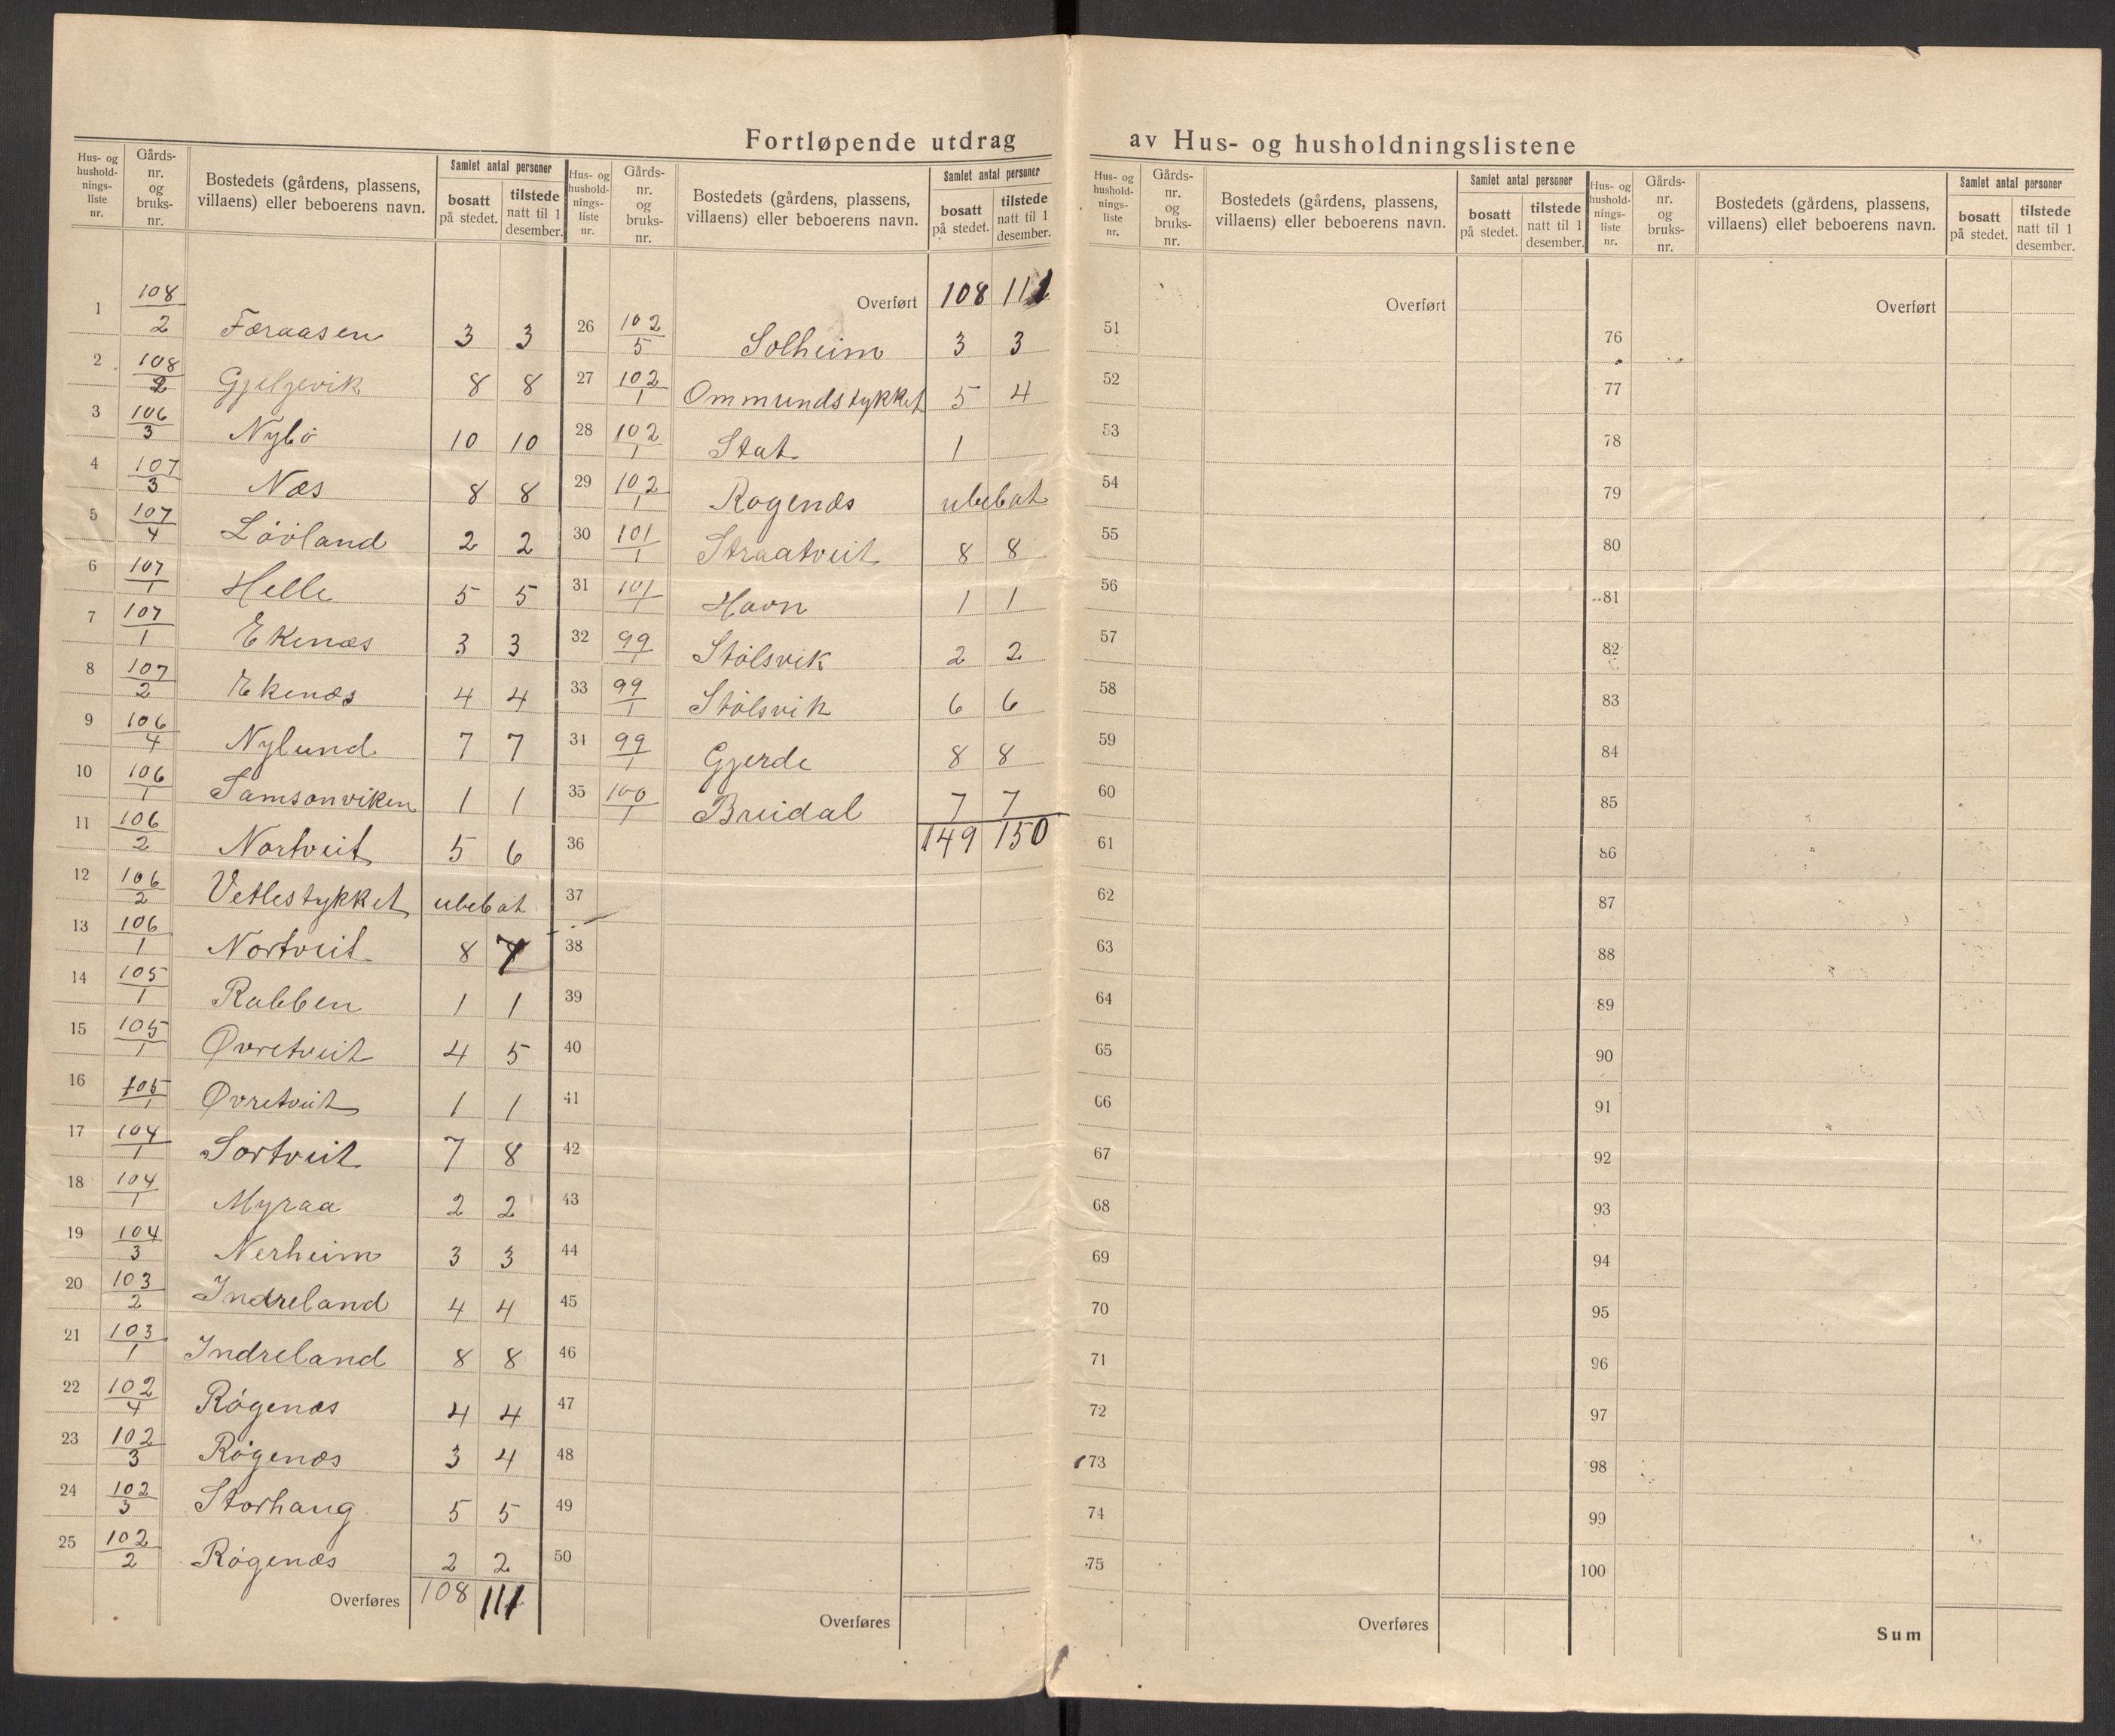 Fortløpende utdrag av Hus- og husholdningslistene
Hus- og husholdningsliste nr. | Gårds-nr. og bruks-nr. | Bostedets (gårdens, plassens, villaens) eller beboerens navn. | Samlet antal personer | bosatt på stedet. | tilstede natt til 1 desember.
1 108/2 Færaasen 3 3
2 108/2 Gjeljevik 8 8
3 106/3 Nybö 10 10
4 107/3 Næs 8 8
5 107/4 Lövland 2 2
6 107/1 Helle 5 5
7 107/1 Ekenæs 3 3
8 107/2 Ekenæs 4 4
9 106/4 Nylund 7 7
10 106/1 Samsonviken 1 1
11 106/2 Nortveit 5 6
12 106/2 Vetlestykket ubebot
13 106/1 Nortveit 8 7
14 105/1 Rabben 1 1
15 105/1 Øvretveit 4 5
16 105/1 Øvretveit 1 1
17 104/1 Sortveit 7 8
18 104/1 Myraa 2 2
19 104/3 Nerheim 3 3
20 103/2 Indreland 4 4
21 103/1 Indreland 8 8
22 102/4 Rögenæs 4 4
23 102/3 Rögenæs 3 4
24 102/3 Storhaug 5 5
25 102/2 Rögenæs 2 2
Overføres 108 111
Hus- og husholdningsliste nr. | Gårds-nr. og bruks-nr. | Bostedets (gårdens, plassens, villaens) eller beboerens navn. | Samlet antal personer | bosatt på stedet. | tilstede natt til 1 desember.
Overført 108 111
26 102/5 Solheim 3 3
27 102/1 Ommundstykket 5 4
28 102/1 Stat 1
29 102/1 Rogenæs ubebot
30 101/1 Straatveit 8 8
31 101/1 Havn 1 1
32 99/1 Stölsvik 2 2
33 99/1 Stölsvik 6 6
34 99/1 Gjerde 8 8
35 100/1 Breidal 7 7
36 149 150
37
38
39
40
41
42
43
44
45
46
47
48
49
50
Overføres
Hus- og husholdningsliste nr. | Gårds-nr. og bruks-nr. | Bostedets (gårdens, plassens, villaens) eller beboerens navn. | Samlet antal personer | bosatt på stedet. | tilstede natt til 1 desember.
Overført
51
52
53
54
55
56
57
58
59
60
61
62
63
64
65
66
67
68
69
70
71
72
73
74
75
Overføres
Hus- og husholdningsliste nr. | Gårds-nr. og bruks-nr. | Bostedets (gårdens, plassens, villaens) eller beboerens navn. | Samlet antal personer | bosatt på stedet. | tilstede natt til 1 desember.
Overført
76
77
78
79
80
81
82
83
84
85
86
87
88
89
90
91
92
93
94
95
96
97
98
99
100
Sum